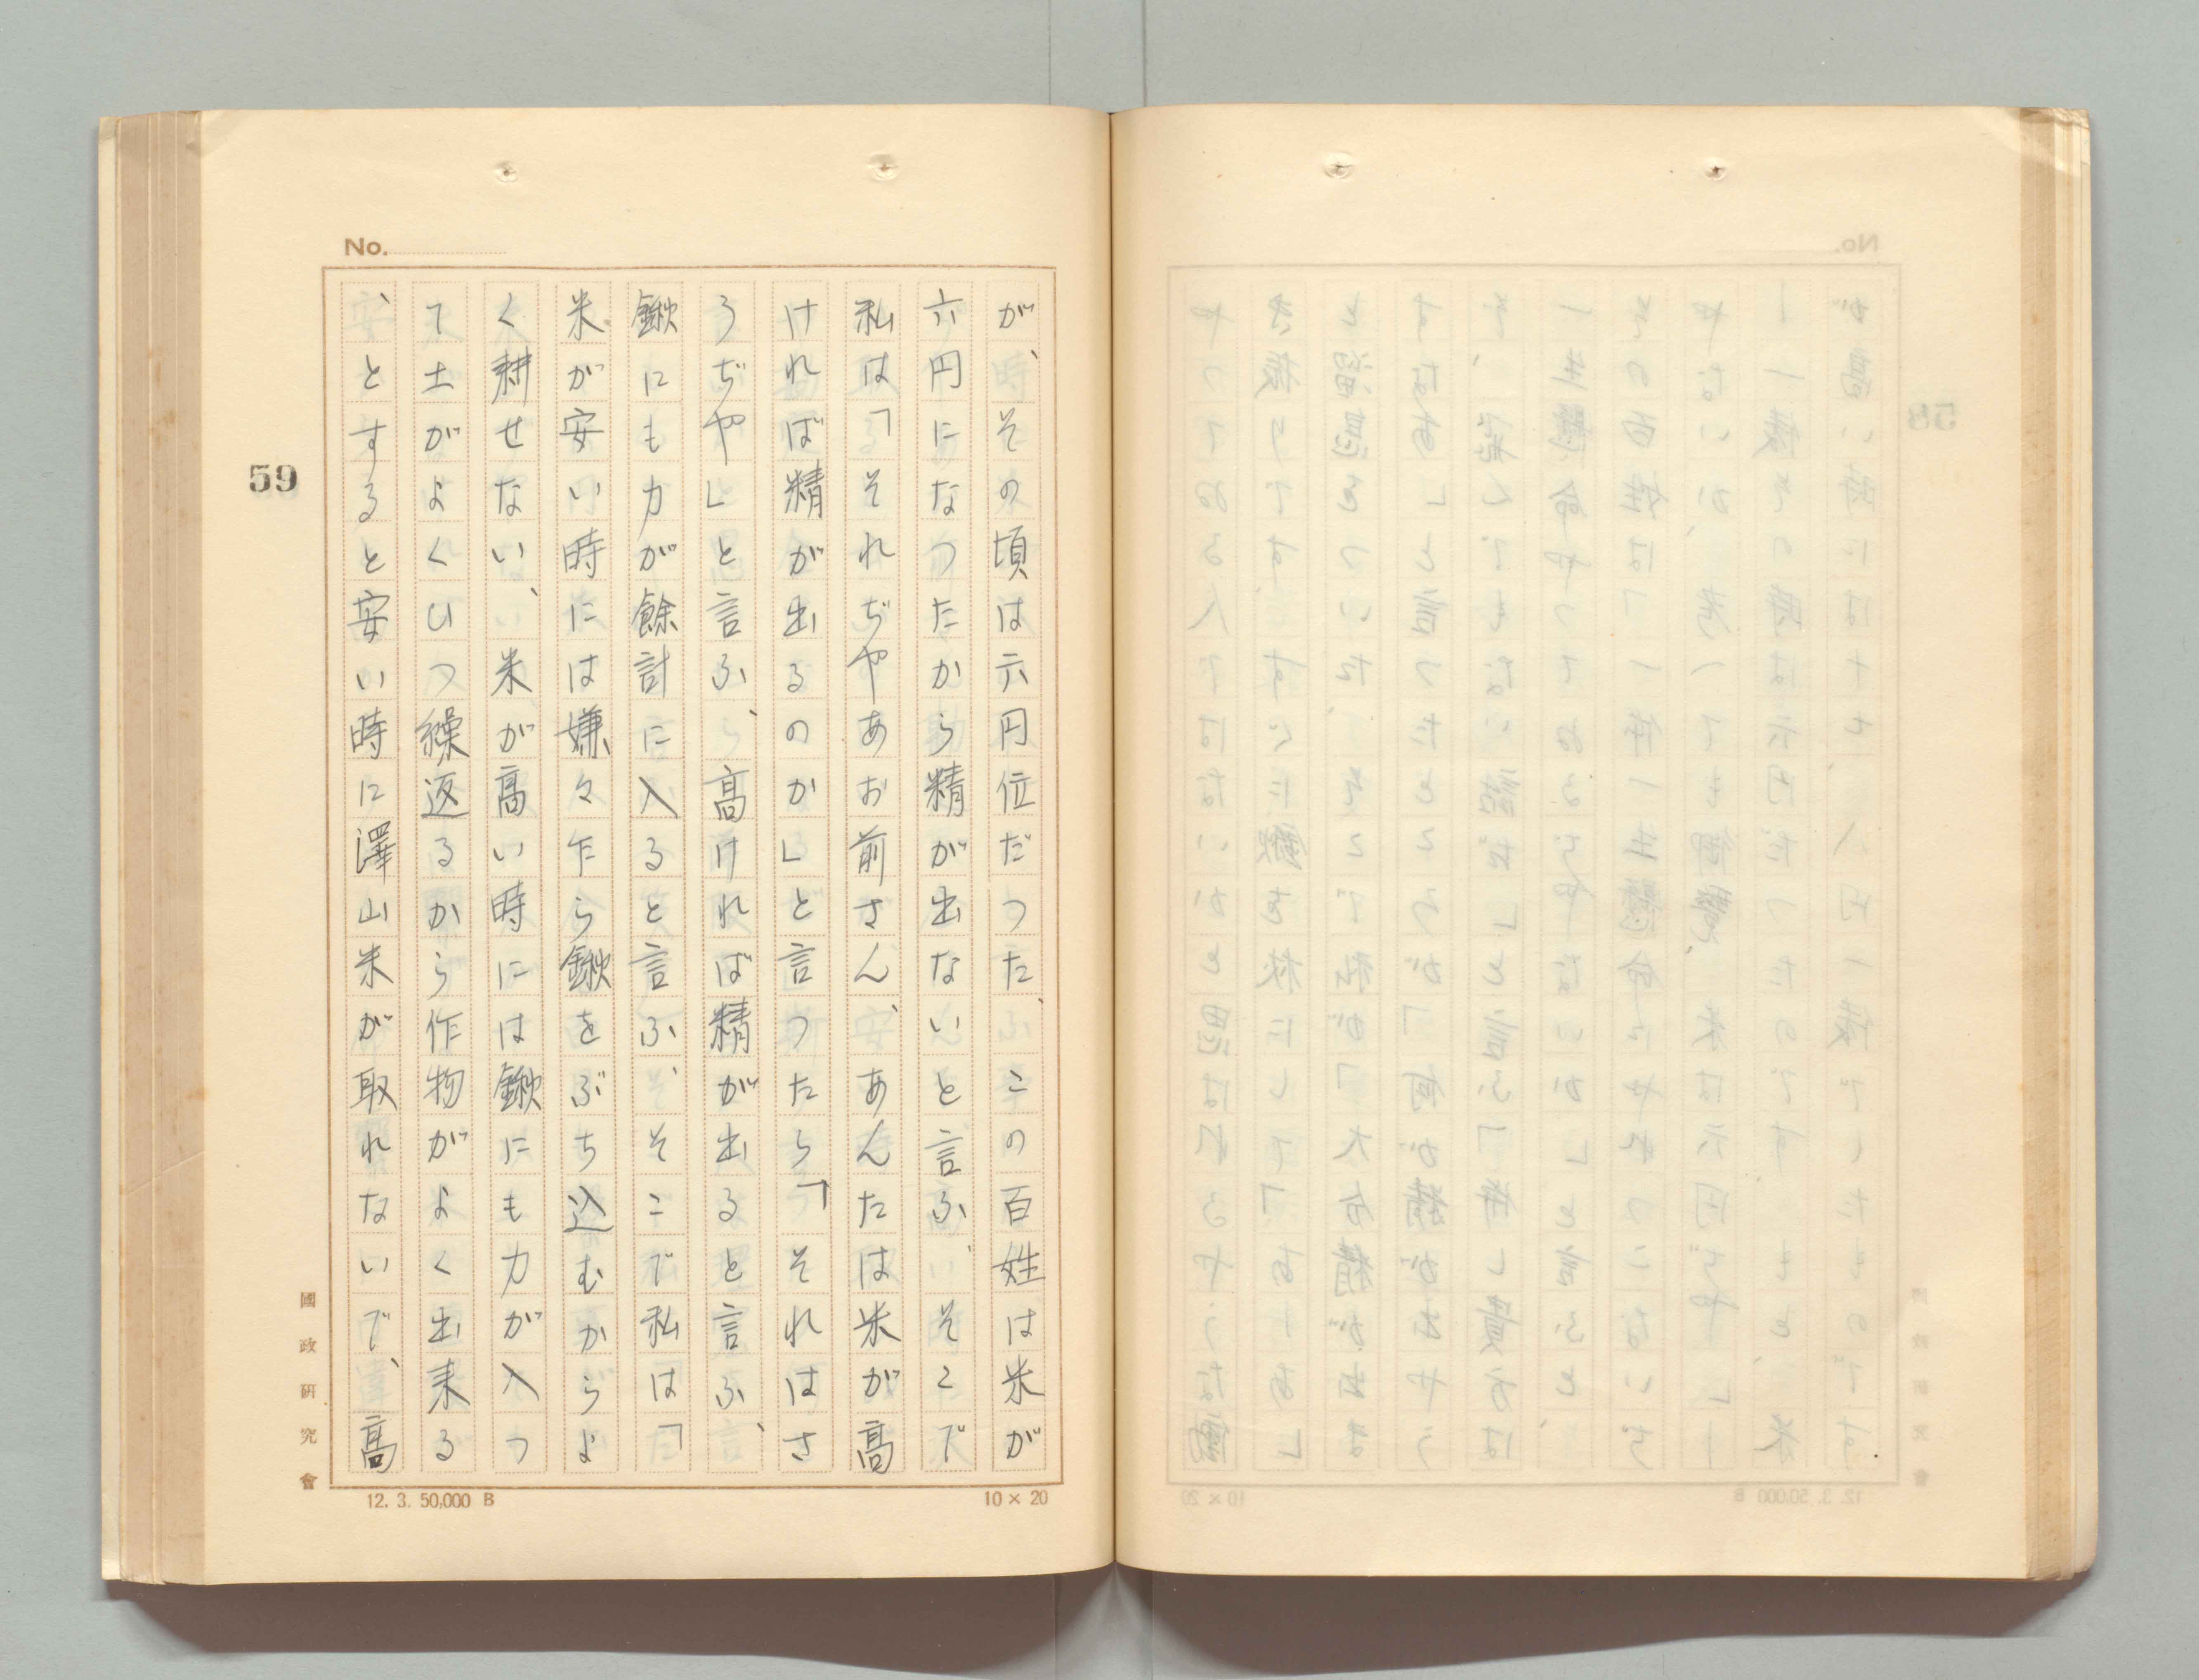 No.
が、その頃は六円位だつた、この百姓は米が
六円になつたから精が出ないと言ふ、そこで
私は「それぢやあお前さん、あんたは米が高
ければ精が出るのか」と言つたら「それはさ
うぢや」と言ふ、高ければ精が出ると言ふ、
鍬にも力が餘計に入ると言ふ、そこで私は「
米が安い時には嫌々乍ら鍬をぶち込むからよ
く耕せない、米が高い時には鍬にも力が入つ
て土がよくひつ繰返るから作物がよく出来る
、とすると安い時に澤山米が取れないで、高
59
國政研究會
12. 3. 50,000 B
10×20